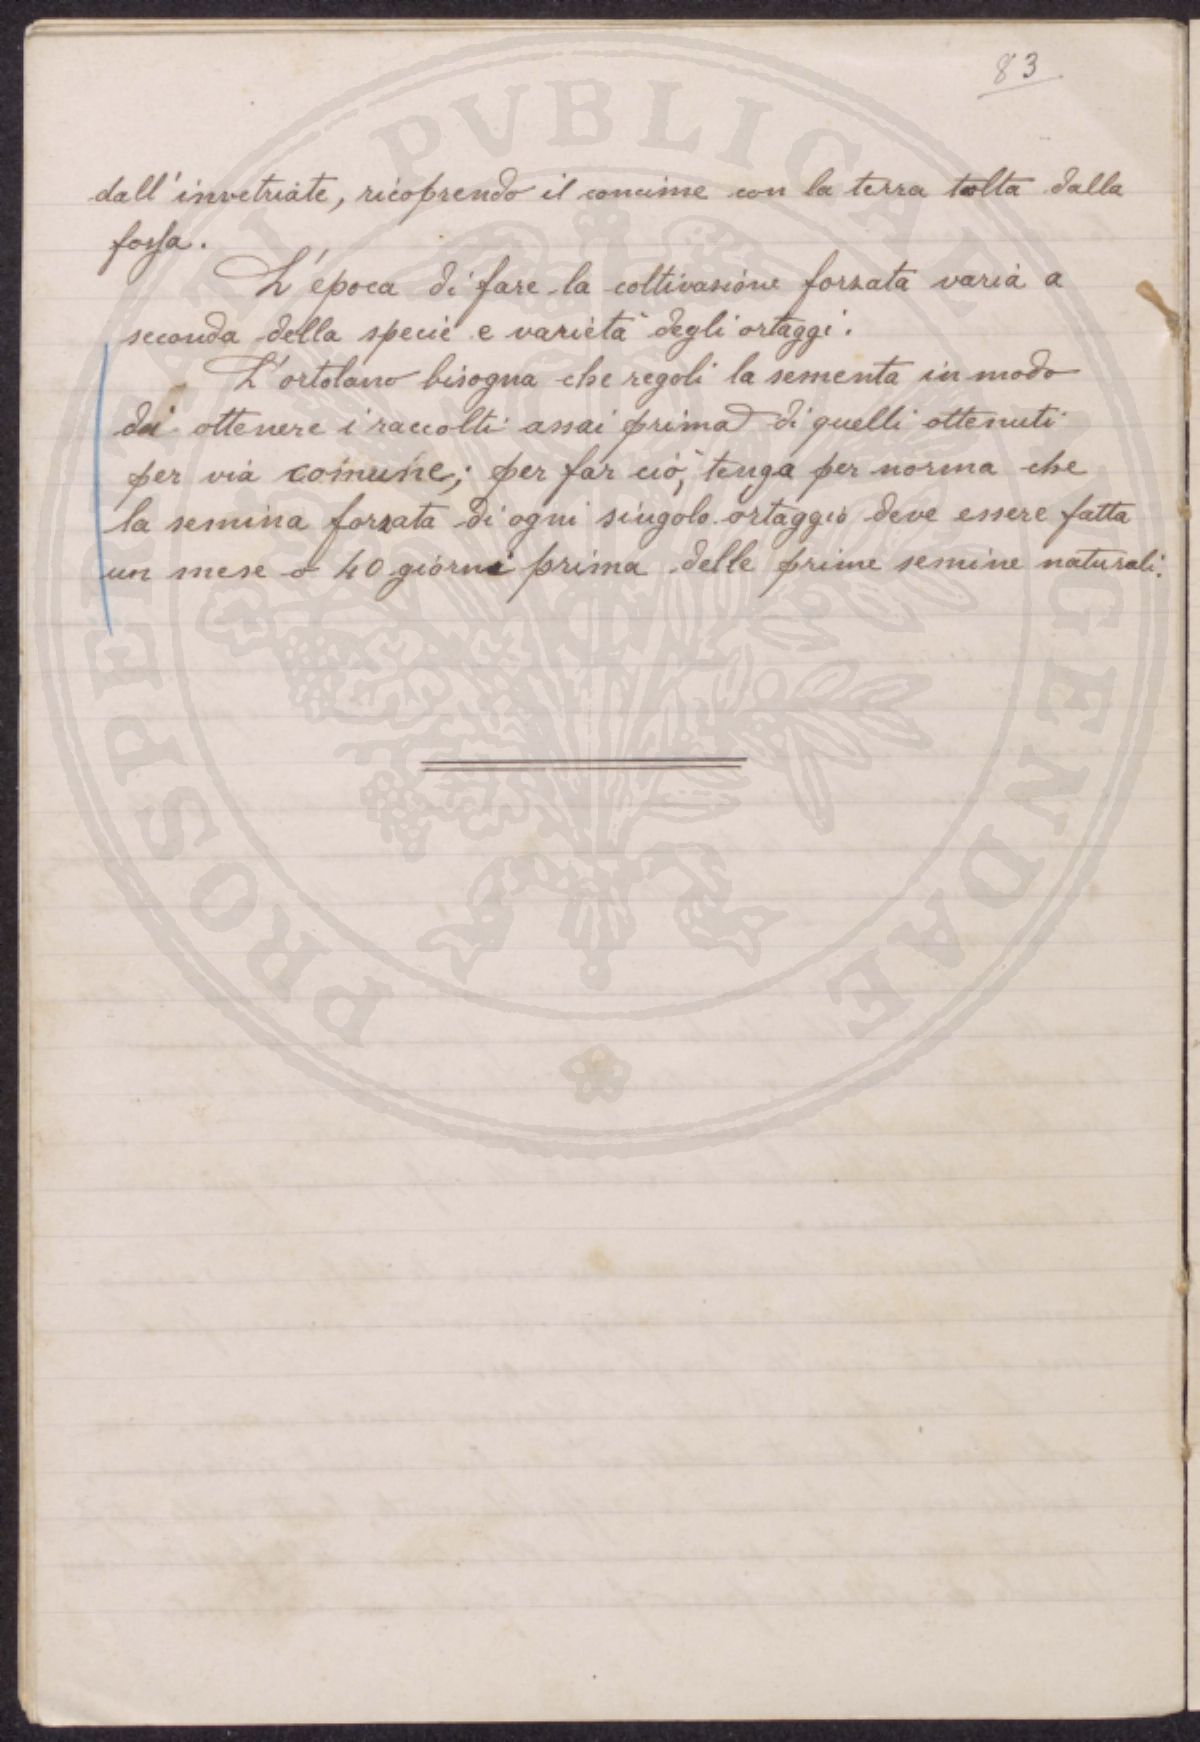 83
dall'invetriate, ricoprendo il concime con la terra tolta dalla
fossa.
L'epoca di fare la coltivazione forzata varia a
seconda della specie e varietà degli ortaggi.
L'ortolano bisogna che regoli la sementa in modo
di ottenere i raccolti assai prima di quelli ottenuti
per via comune; per far ciò, tenga per norma che
la semina forzata di ogni singolo ortaggio deve essere fatta
un mese o 40 giorni prima delle prime semine naturali.
PROSPERITATI PVBLICAE AVGENDAE